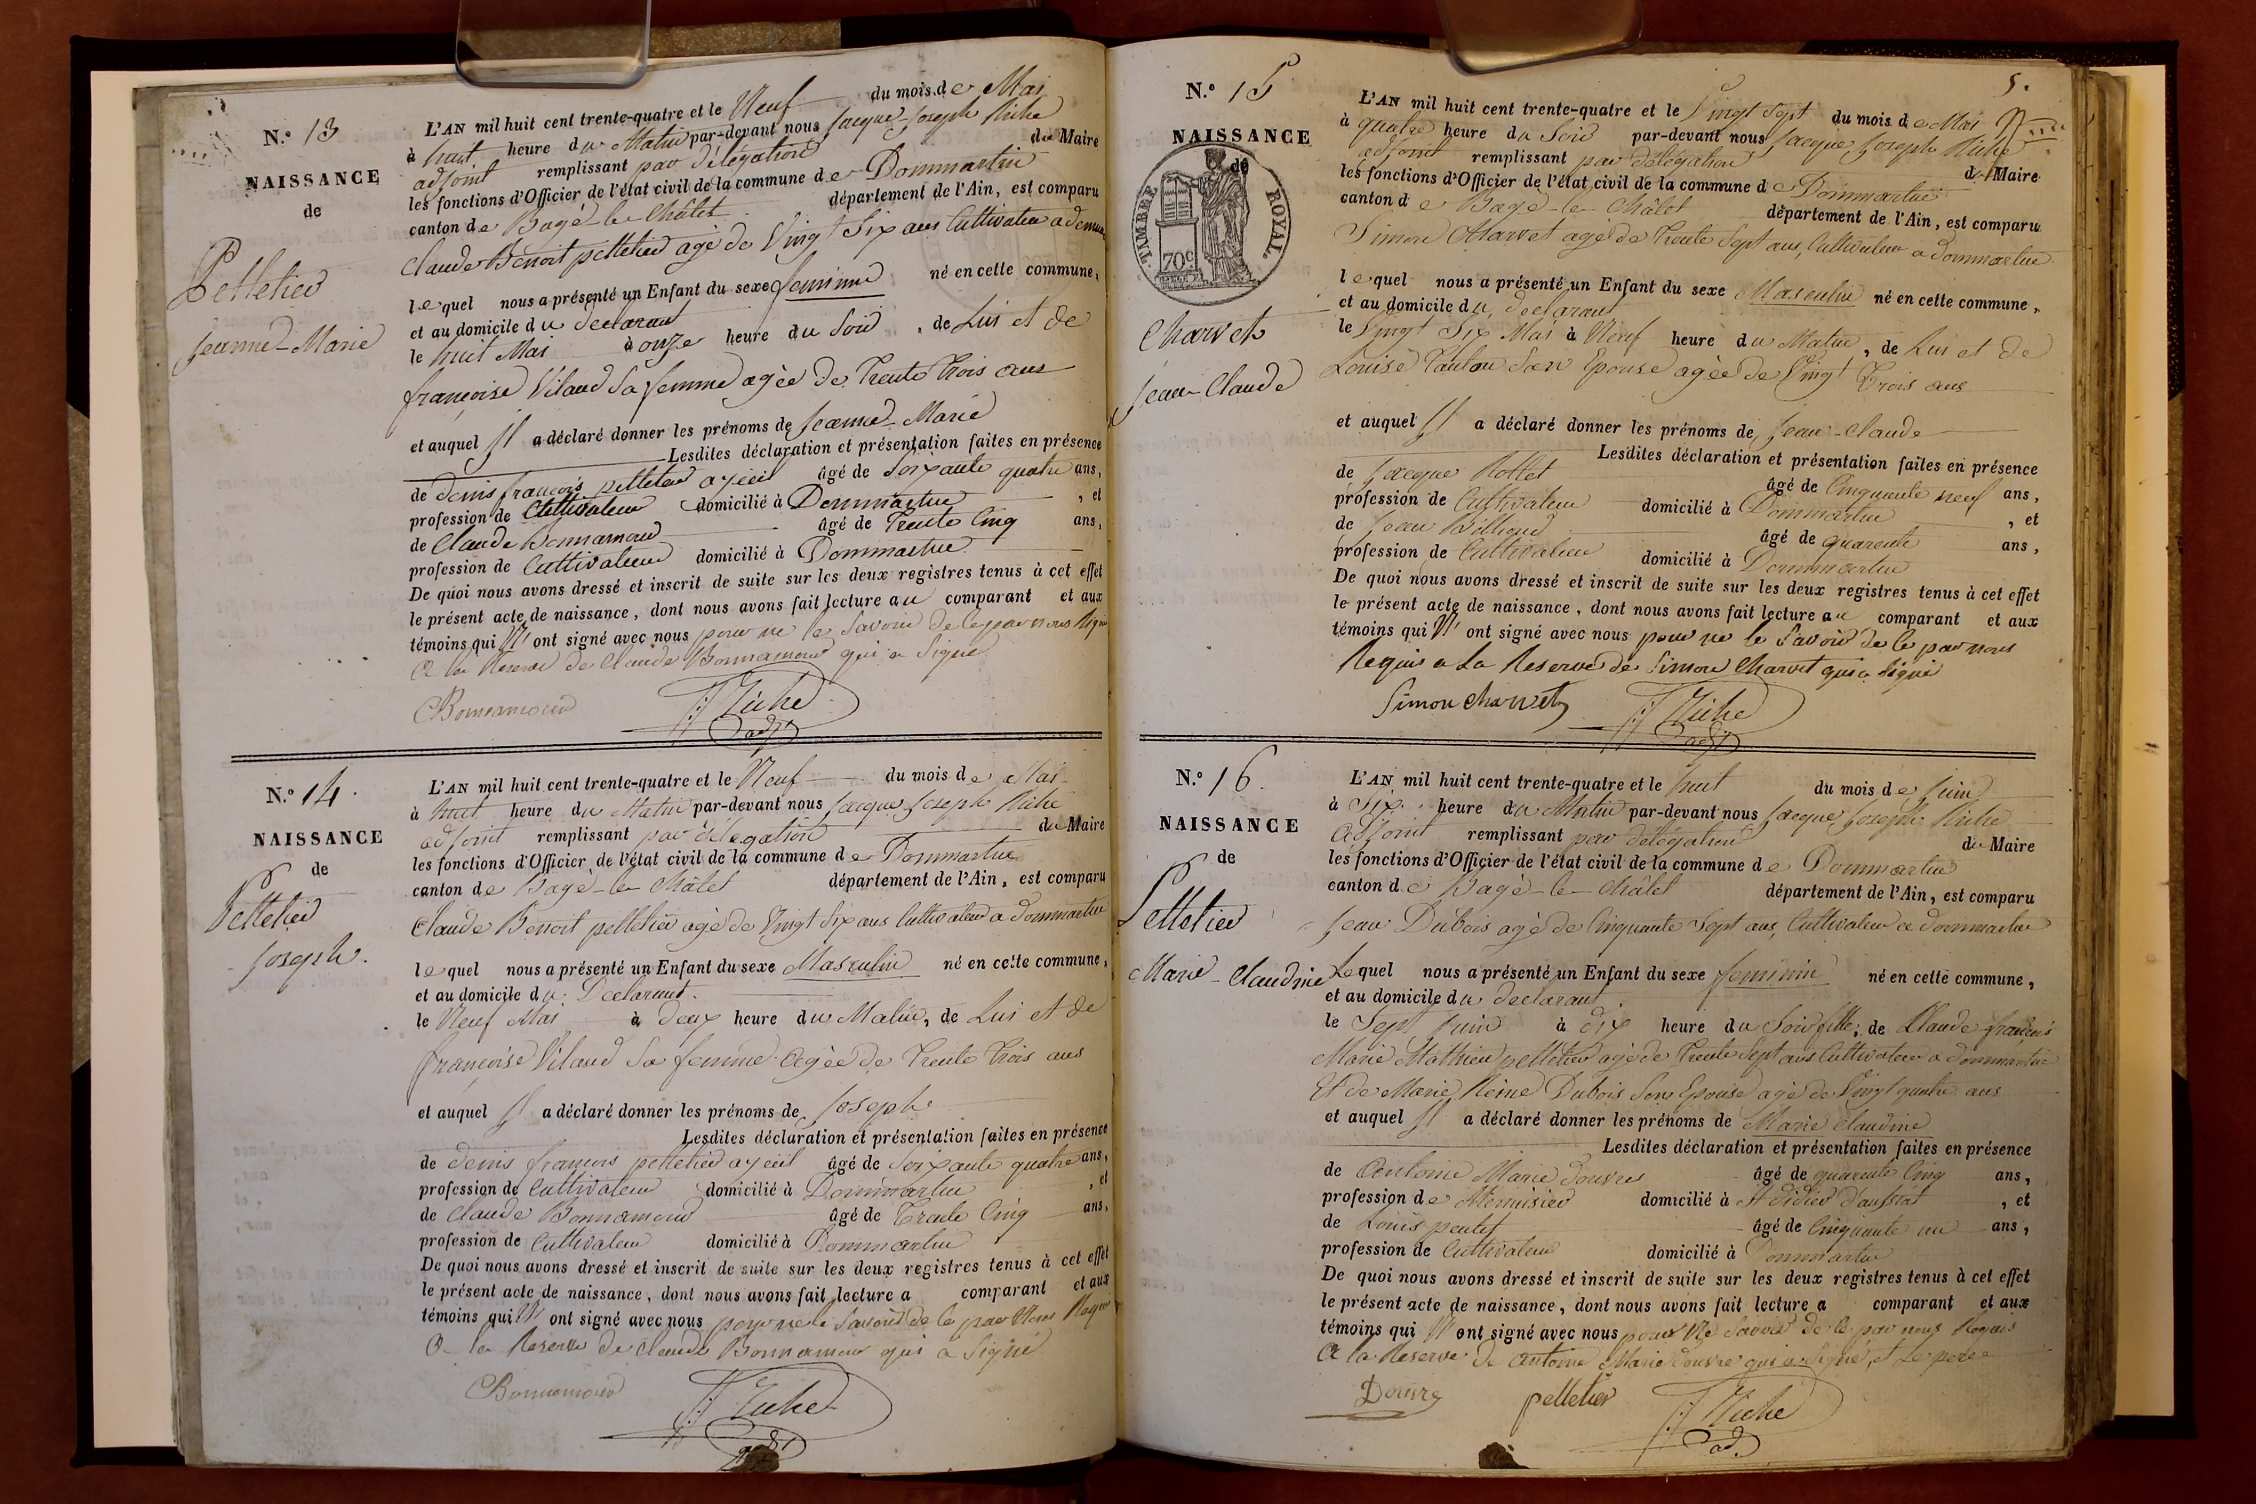 N.º 13
NAISSANCE
de
Pelletier
Jeanne-Marie
L'AN mil huit cent trente-quatre et le Neuf du mois de Mai
à huit heure du Matin par-devant nous Jacque Joseph Riche
adjoint remplissant par délégation du Maire
les fonctions d'Officier de l'état civil de la commune de Dommartin
canton de Bagé-le-Châtel département de l'Ain, est comparu
Claude Benoit pelletier agé de Vingt Six ans Cultivateur a
lequel nous a présenté un Enfant du sexe feminin né en cette commune,
et au domicile du declarant
le huit Mai à onze heure du Soir, de Lui et de
françoise Vilaud Sa femme agée de Trente Trois ans
et auquel Il a déclaré donner les prénoms de Jeanne-Marie
Lesdites déclaration et présentation faites en présence
de denis françois pelletier ayeul âgé de Soixante quatre ans,
profession de Cultivateur domicilié à Dommartin, et
de Claude Bonnamour âgé de Trente Cinq ans,
profession de Cultivateur domicilié à Dommartin
De quoi nous avons dressé et inscrit de suite sur les deux registres tenus à cet effet
le présent acte de naissance, dont nous avons fait lecture au comparant et aux
témoins qui N' ont signé avec nous pour ne le Savoir de ce par nous Requis
a la Reserve de Claude Bonnamour qui a Signé
CBonnamour
JJ Riche
adj
N.º 14.
NAISSANCE
de
Pelletier
Joseph.
L'AN mil huit cent trente-quatre et le Neuf du mois de Mai
à huit heure du Matin par-devant nous Jacque Joseph Riche
adjoint remplissant par délégation du Maire
les fonctions d'Officier de l'état civil de la commune de Dommartin
canton de Bagé-le-Châtel département de l'Ain, est comparu
Claude Benoit pelletier agé de Vingt Six ans Cultivateur a Dommartin
lequel nous a présenté un Enfant du sexe Masculin né en cette commune,
et au domicile du Declarant.
le Neuf Mai à deux heure du Matin, de Lui et de
françoise Vilaud Sa femme agée de Trente Trois ans
et auquel Il a déclaré donner les prénoms de Joseph
Lesdites déclaration et présentation faites en présence
de denis francois pelletier ayeul âgé de Soixante quatre ans,
profession de Cultivateur domicilié à Dommartin, et
de Claude Bonnamour âgé de Trente Cinq ans,
profession de Cultivateur domicilié à Dommartin
De quoi nous avons dressé et inscrit de suite sur les deux registres tenus à cet effet
le présent acte de naissance, dont nous avons fait lecture a comparant et aux
témoins qui N' ont signé avec nous pour ne le Savoir de ce par Nous Requis
a la Reserve de Claude Bonnamour qui a Signé
CBonnamour
JJ Riche
adj
5.
N.º 15
NAISSANCE
de
TIMBRE ROYAL.
70c
Charvet
Jean-Claude
L'AN mil huit cent trente-quatre et le Vingt Sept du mois de Mai
à quatre heure du Soir par-devant nous Jacque Joseph Riche
adjoint remplissant par délégation du Maire
les fonctions d'Officier de l'état civil de la commune de Dommartin
canton de Bagé-le-Châtel département de l'Ain, est comparu
Simon Charvet agé de Trente Sept ans, Cultivateur a Dommartin
lequel nous a présenté un Enfant du sexe Masculin né en cette commune,
et au domicile du declarant
le Vingt Six Mai à Neuf heure du Matin, de Lui et de
Louise Son Epouse agée de Vingt Trois ans
et auquel Il a déclaré donner les prénoms de Jean-Claude
Lesdites déclaration et présentation faites en présence
de Jacque Rollet âgé de Cinquante neuf ans,
profession de Cultivateur domicilié à Dommartin, et
de Jean Billioud âgé de quarente ans,
profession de Cultivateur domicilié à Dommartin
De quoi nous avons dressé et inscrit de suite sur les deux registres tenus à cet effet
le présent acte de naissance, dont nous avons fait lecture au comparant et aux
témoins qui N' ont signé avec nous pour ne le Savoir de ce par nous
Requis a La Reserve de Simon Charvet qui a Signé
Simon charvet
JJ Riche
adj
N.º 16.
NAISSANCE
de
Pelletier
Marie-Claudine
L'AN mil huit cent trente-quatre et le huit du mois de Juin
à Six heure du Matin par-devant nous Jacque Joseph Riche
Adjoint remplissant par délégation du Maire
les fonctions d'Officier de l'état civil de la commune de Dommartin
canton de Bagé-le-Châtel département de l'Ain, est comparu
Jean Dubois agé de Cinquante Sept ans, Cultivateur a Dommartin
Lequel nous a présenté un Enfant du sexe feminin né en cette commune,
et au domicile du declarant
le Sept Juin à dix heure du Soir fille, de Claude françois
Marie Mathieu pelletier agé de Trente Sept ans Cultivateur a Dommartin
Et de Marie Reine Dubois Son Epouse agé de Vingt quatre ans
et auquel Il a déclaré donner les prénoms de Marie Claudine
Lesdites déclaration et présentation faites en présence
de Antoine Marie Douvre âgé de quarente Cinq ans,
profession de Menuisier domicilié à St didier d'aussiat, et
de Louis âgé de Cinquante un ans,
profession de Cultivateur domicilié à Dommartin
De quoi nous avons dressé et inscrit de suite sur les deux registres tenus à cet effet
le présent acte de naissance, dont nous avons fait lecture a comparant et aux
témoins qui N' ont signé avec nous pour Ne Savoir de ce par nous Requis
a la Reserve de antoine Marie Douvre qui a Signé, et Le pere
Douvre
pelletier
JJ Riche
ad.